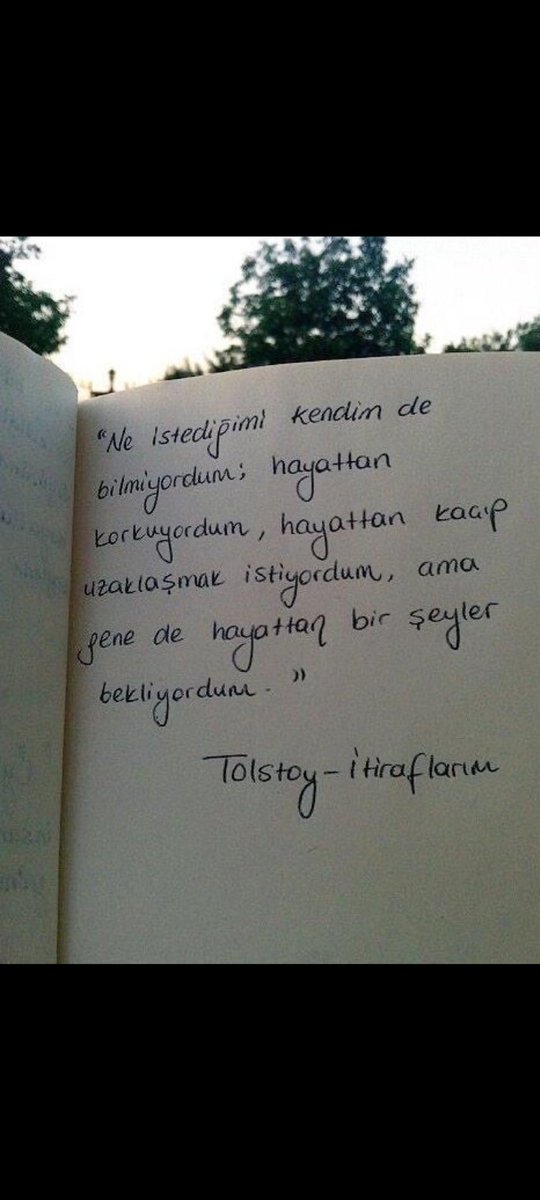 "Ne istediğimi kendim de
bilmiyordum; hayattan
korkuyordum, hayattan kaçıp
uzaklaşmak istiyordum, ama
gene de hayattan bir şeyler
bekliyordum."
Tolstoy - İtiraflarım